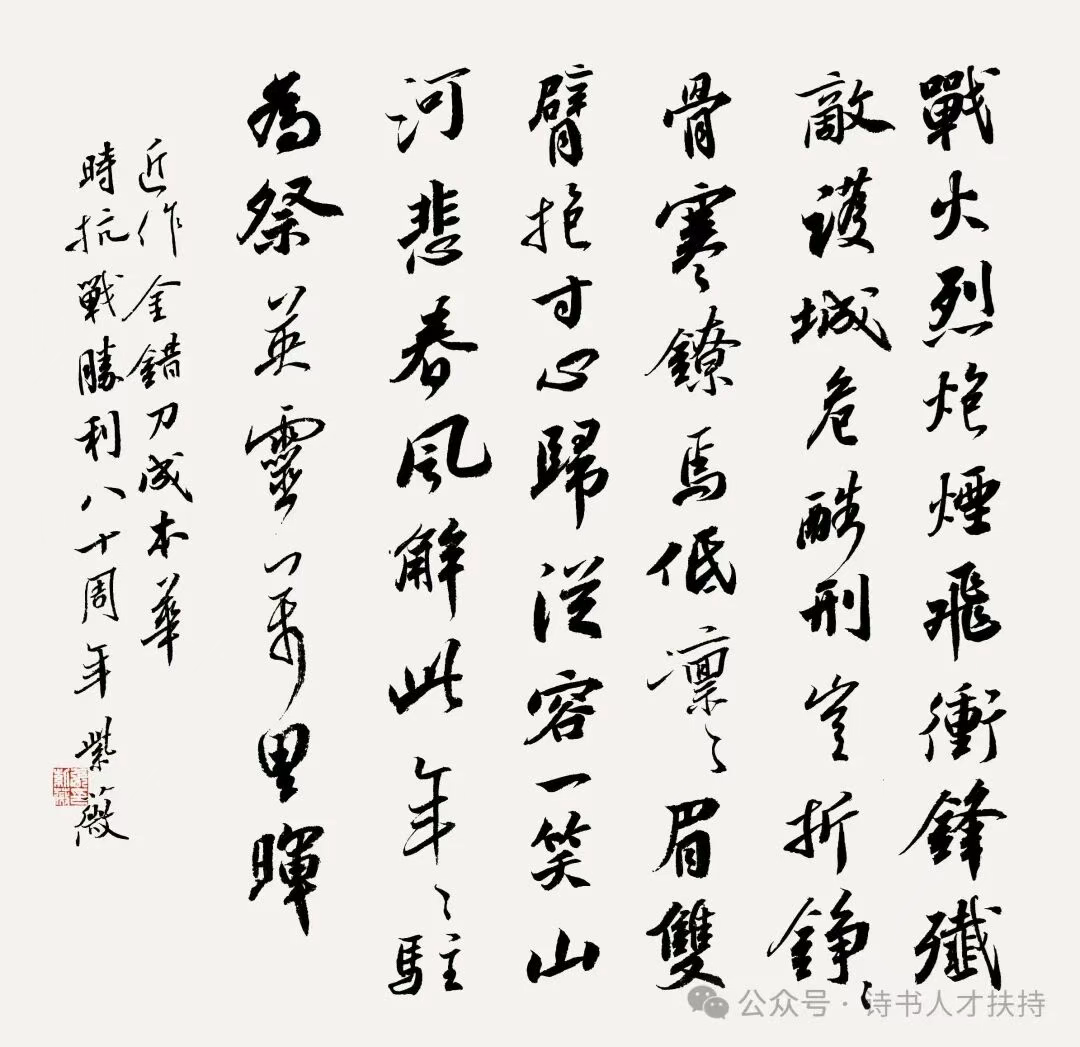 戰火烈炮煙飛衝鋒殲
敵護城危酷刑豈折錚〻
骨寒鐐焉低凛〻眉雙
臂抱寸心歸從容一笑山
河悲春風解此年〻駐
為祭英靈萬里暉
近作金錯刀成本華
時抗戰勝利八十周年紫薇
公众号·诗书人才扶持